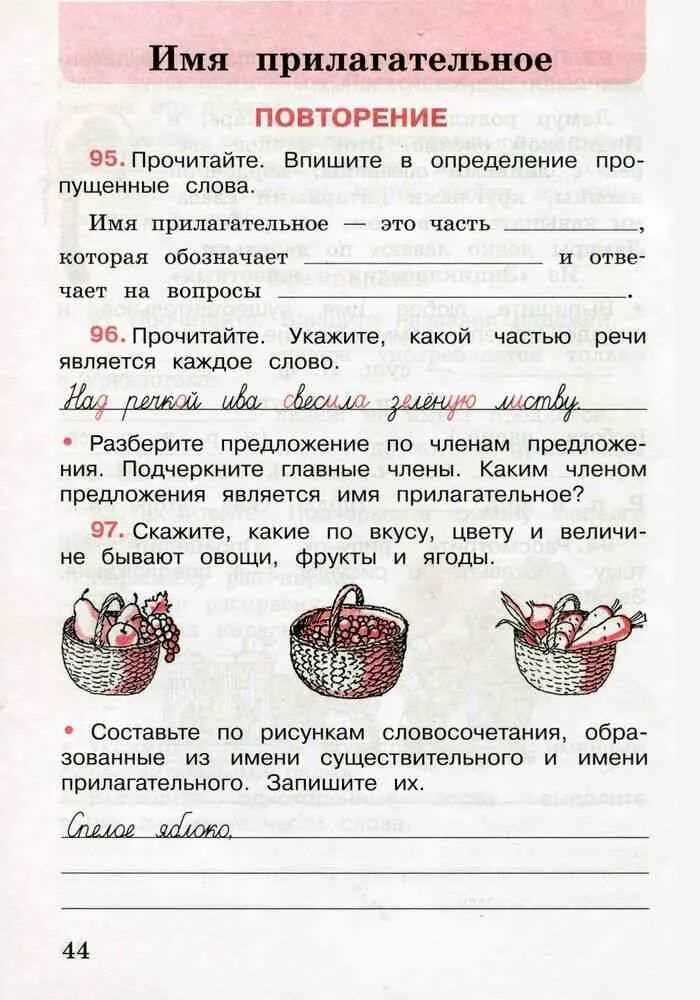 Имя прилагательное
ПОВТОРЕНИЕ
95. Прочитайте. Впишите в определение про-
пущенные слова.
Имя прилагательное — это часть ________,
которая обозначает ________ и отве-
чает на вопросы ________.
96. Прочитайте. Укажите, какой частью речи
является каждое слово.
Над речкой ива свесила зелёную листву.
• Разберите предложение по членам предложе-
ния. Подчеркните главные члены. Каким членом
предложения является имя прилагательное?
97. Скажите, какие по вкусу, цвету и величи-
не бывают овощи, фрукты и ягоды.
• Составьте по рисункам словосочетания, обра-
зованные из имени существительного и имени
прилагательного. Запишите их.
Спелое яблоко,
44